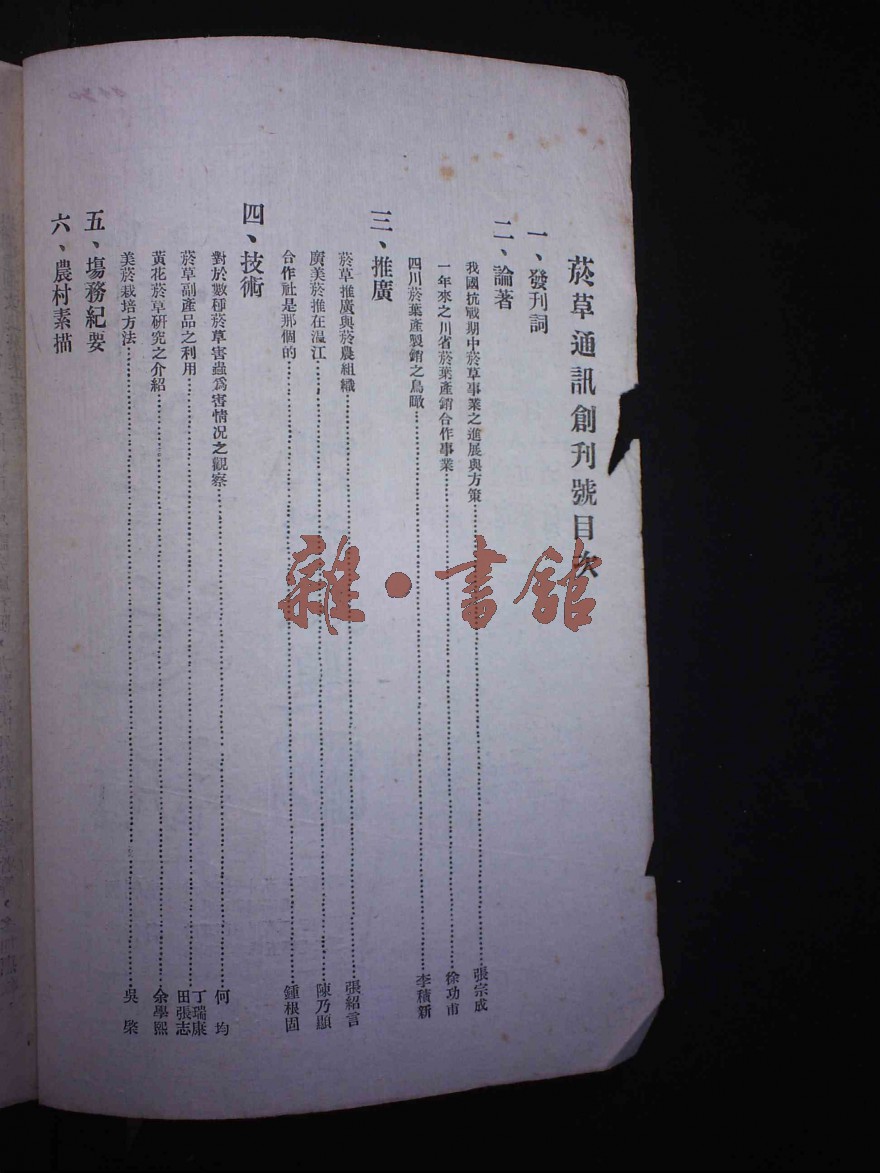 菸草通訊創刊號目次
一、發刊詞
二、論著
我國抗戰期中菸草事業之進展與方策……張宗成
一年來之川省菸葉產銷合作事業……徐功甫
四川菸葉產製銷之鳥瞰……李積新
三、推廣
菸草推廣與菸農組織……張紹言
廣美菸推在温江……陳乃顯
合作社是那個的……鍾根固
四、技術
對於數種菸草害蟲爲害情況之觀察……何均
菸草副產品之利用……丁瑞康 田張志
黃花菸草研究之介紹……余學熙
美菸栽培方法……吳榮
五、場務紀要
六、農村素描
雜·書館